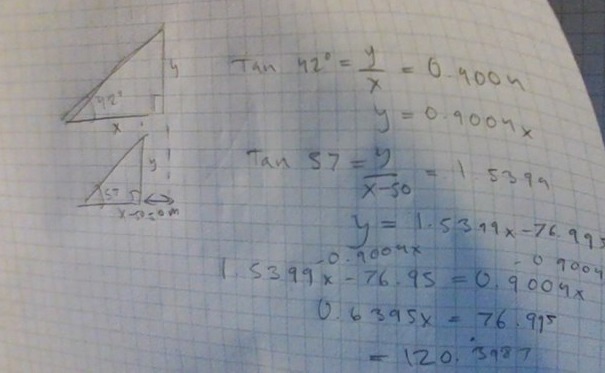 42°
y
x
Tan 42° = y/x = 0.9004
y = 0.9004x
57
y
Tan 57 = y/x-50 = 1.5399
y = 1.5399x - 76.995
-0.9004x -0.9004
1.5399x - 76.95 = 0.9004x
0.6395x = 76.995
= 120.3987